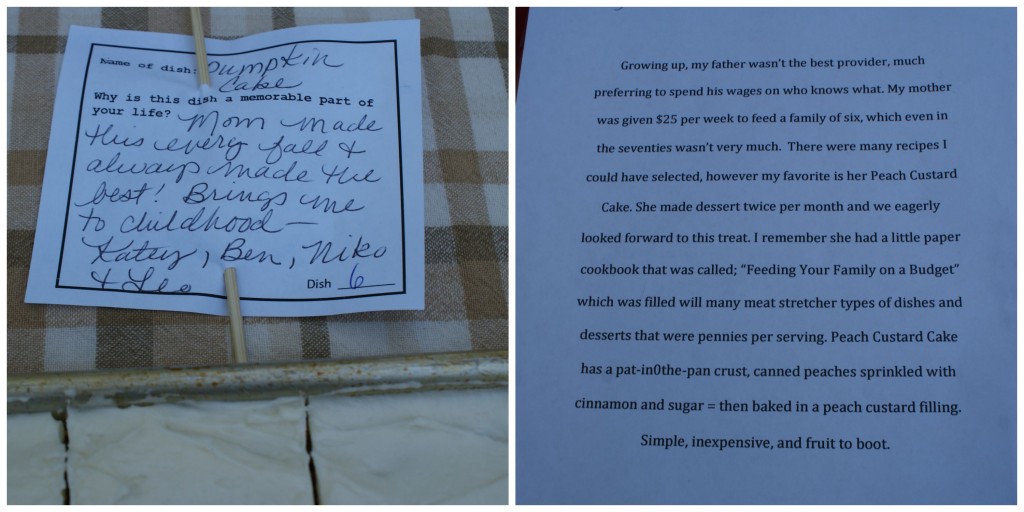 Name of dish: Pumpkin
Cake
Why is this dish a memorable part of
your life? Mom made
this every fall &
always made the
best! Brings me
to childhood —
Katey, Ben, Niko
& Leo
Dish 6
Growing up, my father wasn't the best provider, much
preferring to spend his wages on who knows what. My mother
was given $25 per week to feed a family of six, which even in
the seventies wasn't very much. There were many recipes I
could have selected, however my favorite is her Peach Custard
Cake. She made dessert twice per month and we eagerly
looked forward to this treat. I remember she had a little paper
cookbook that was called; "Feeding Your Family on a Budget"
which was filled will many meat stretcher types of dishes and
desserts that were pennies per serving. Peach Custard Cake
has a pat-in0the-pan crust, canned peaches sprinkled with
cinnamon and sugar = then baked in a peach custard filling.
Simple, inexpensive, and fruit to boot.